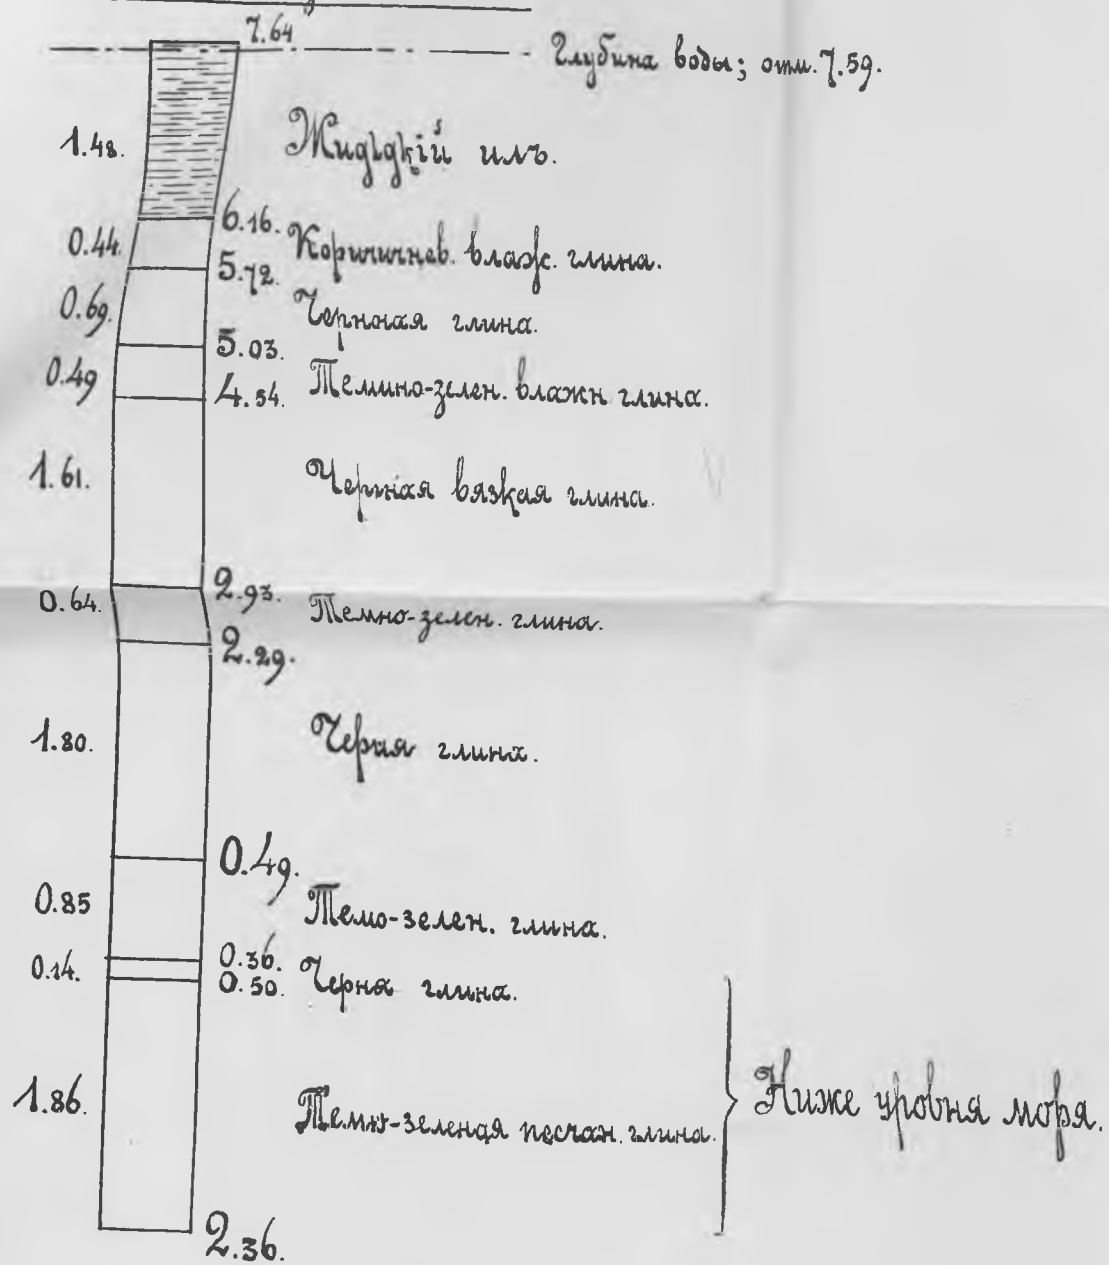 7.64
Глубина воды; отм. 7.59.
1.48. Жидьдкій илъ.
6.16.
0.44. Коричичнев. влаж. глина.
5.72.
0.69. Чернοая глина.
5.03.
0.49 Темино-зелен. влажн глина.
4.54.
1.61. Черная вязкая глина.
2.93.
0.64. Темно-зелен. глина.
2.29.
1.80. Черая глина.
0.49.
0.85 Темо-зелен. глина.
0.36.
0.14. Черна глина.
0.50.
1.86. Темно-зеленая песчан. глина. Ниже уровня моря.
2.36.